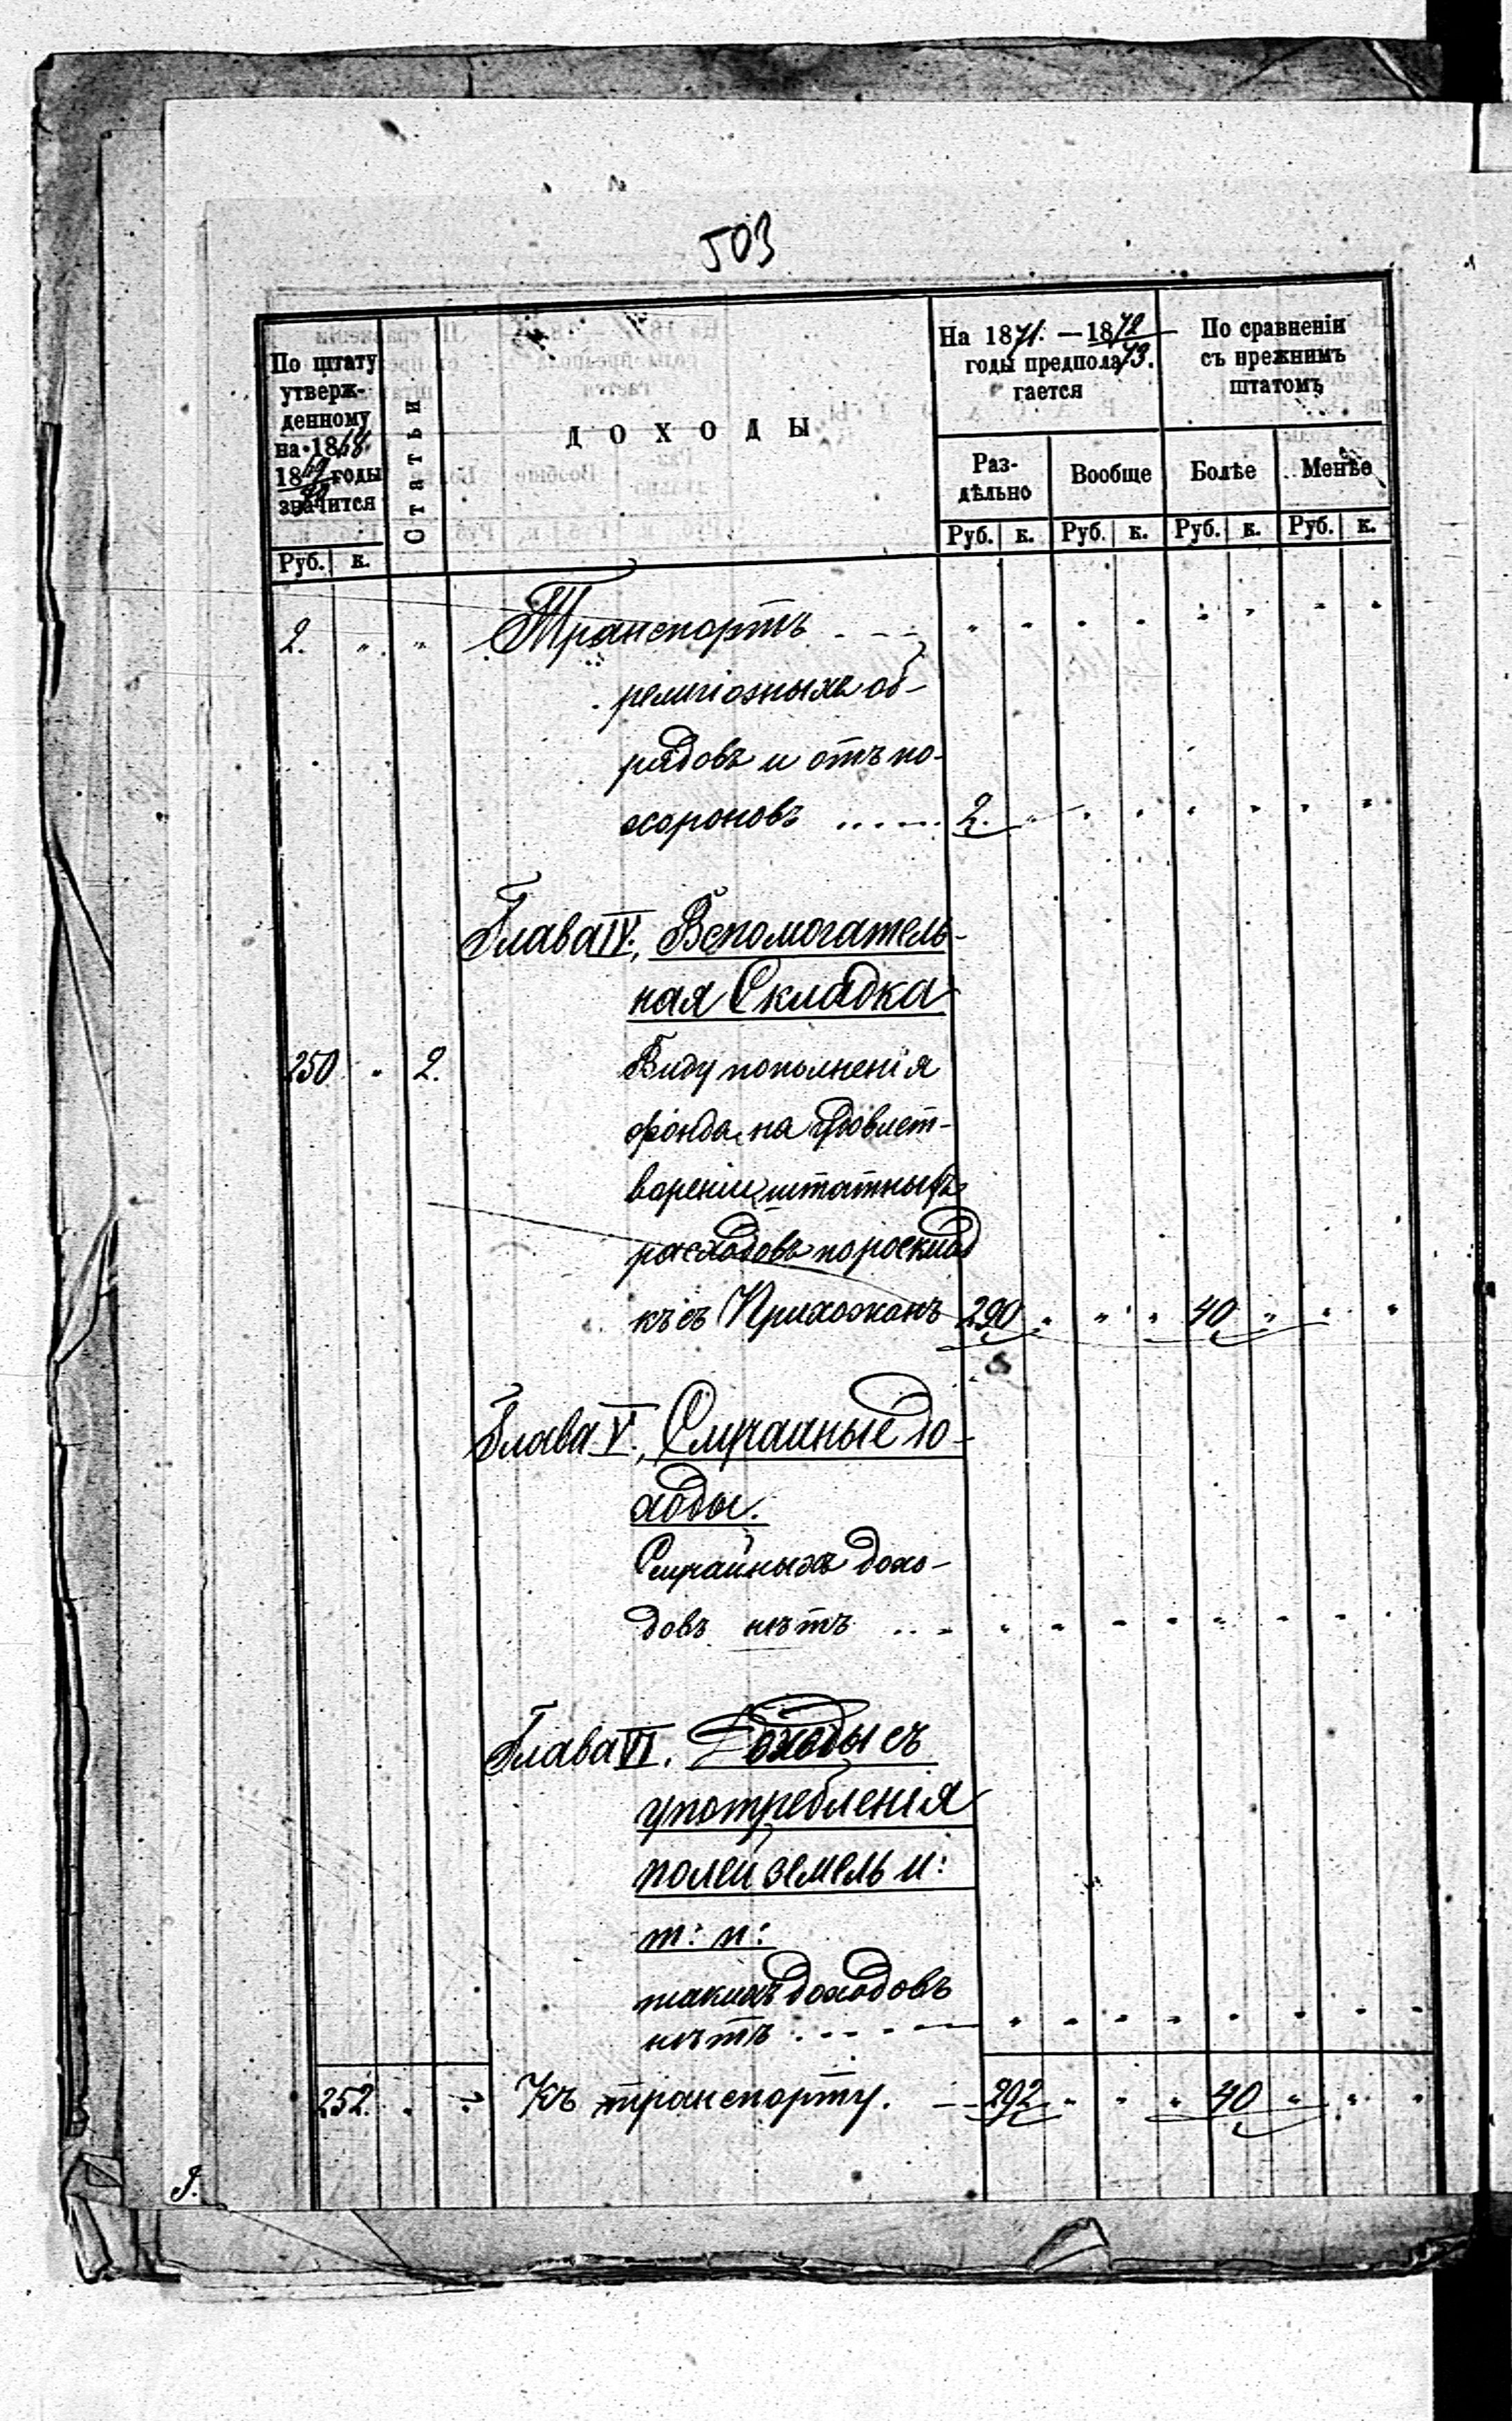 503
По штату утверж-
денному
на 1868.
1869 годы
70
значится
Руб. к.
Статьи
ДОХОДЫ
На 1871. — 1872
73.
годы предпола
гается
Раз-
дѣльно
Вообще
Руб. к. Руб. к.
По сравненіи
съ прежнимъ
штатомъ
Болѣе Менѣе
Руб. к. Руб. к.
2. " " Транспортъ - - - " " " " " " " "
религіозныхъ об-
рядовъ и отъ по-
хороновъ ..... 2. " " " " " " "
Глава IV., Вспомогатель-
ная Складка
250 " 2. Виду пополненія
фонда на удовлет-
вореніи штатныхъ
расходовъ по росклад
къ съ Прихожанъ 290 " " " 40 " " "
Глава V., Случаиные до-
ходы.
Случайныхъ дохо-
довъ нѣтъ ... " " " " " " " "
Глава VI. Доходы съ
употребленія
полей земель и:
т: п:
такихъ доходовъ
нѣтъ . - - - - " " " " " " " "
252. " Къ транспорту. — 292 " " " 40 " " "